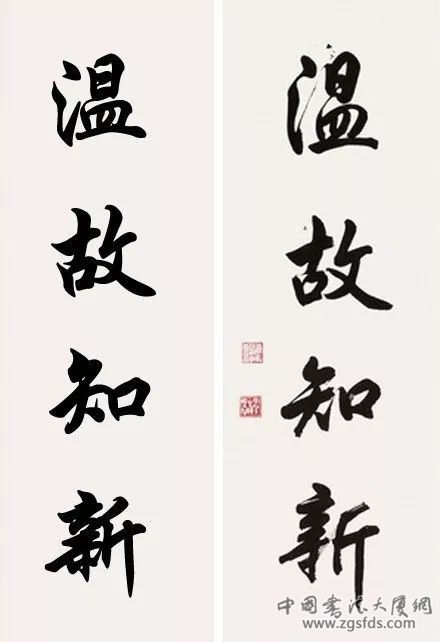 温故知新
温故知新
中国书法大厦网
www.zgsfds.com